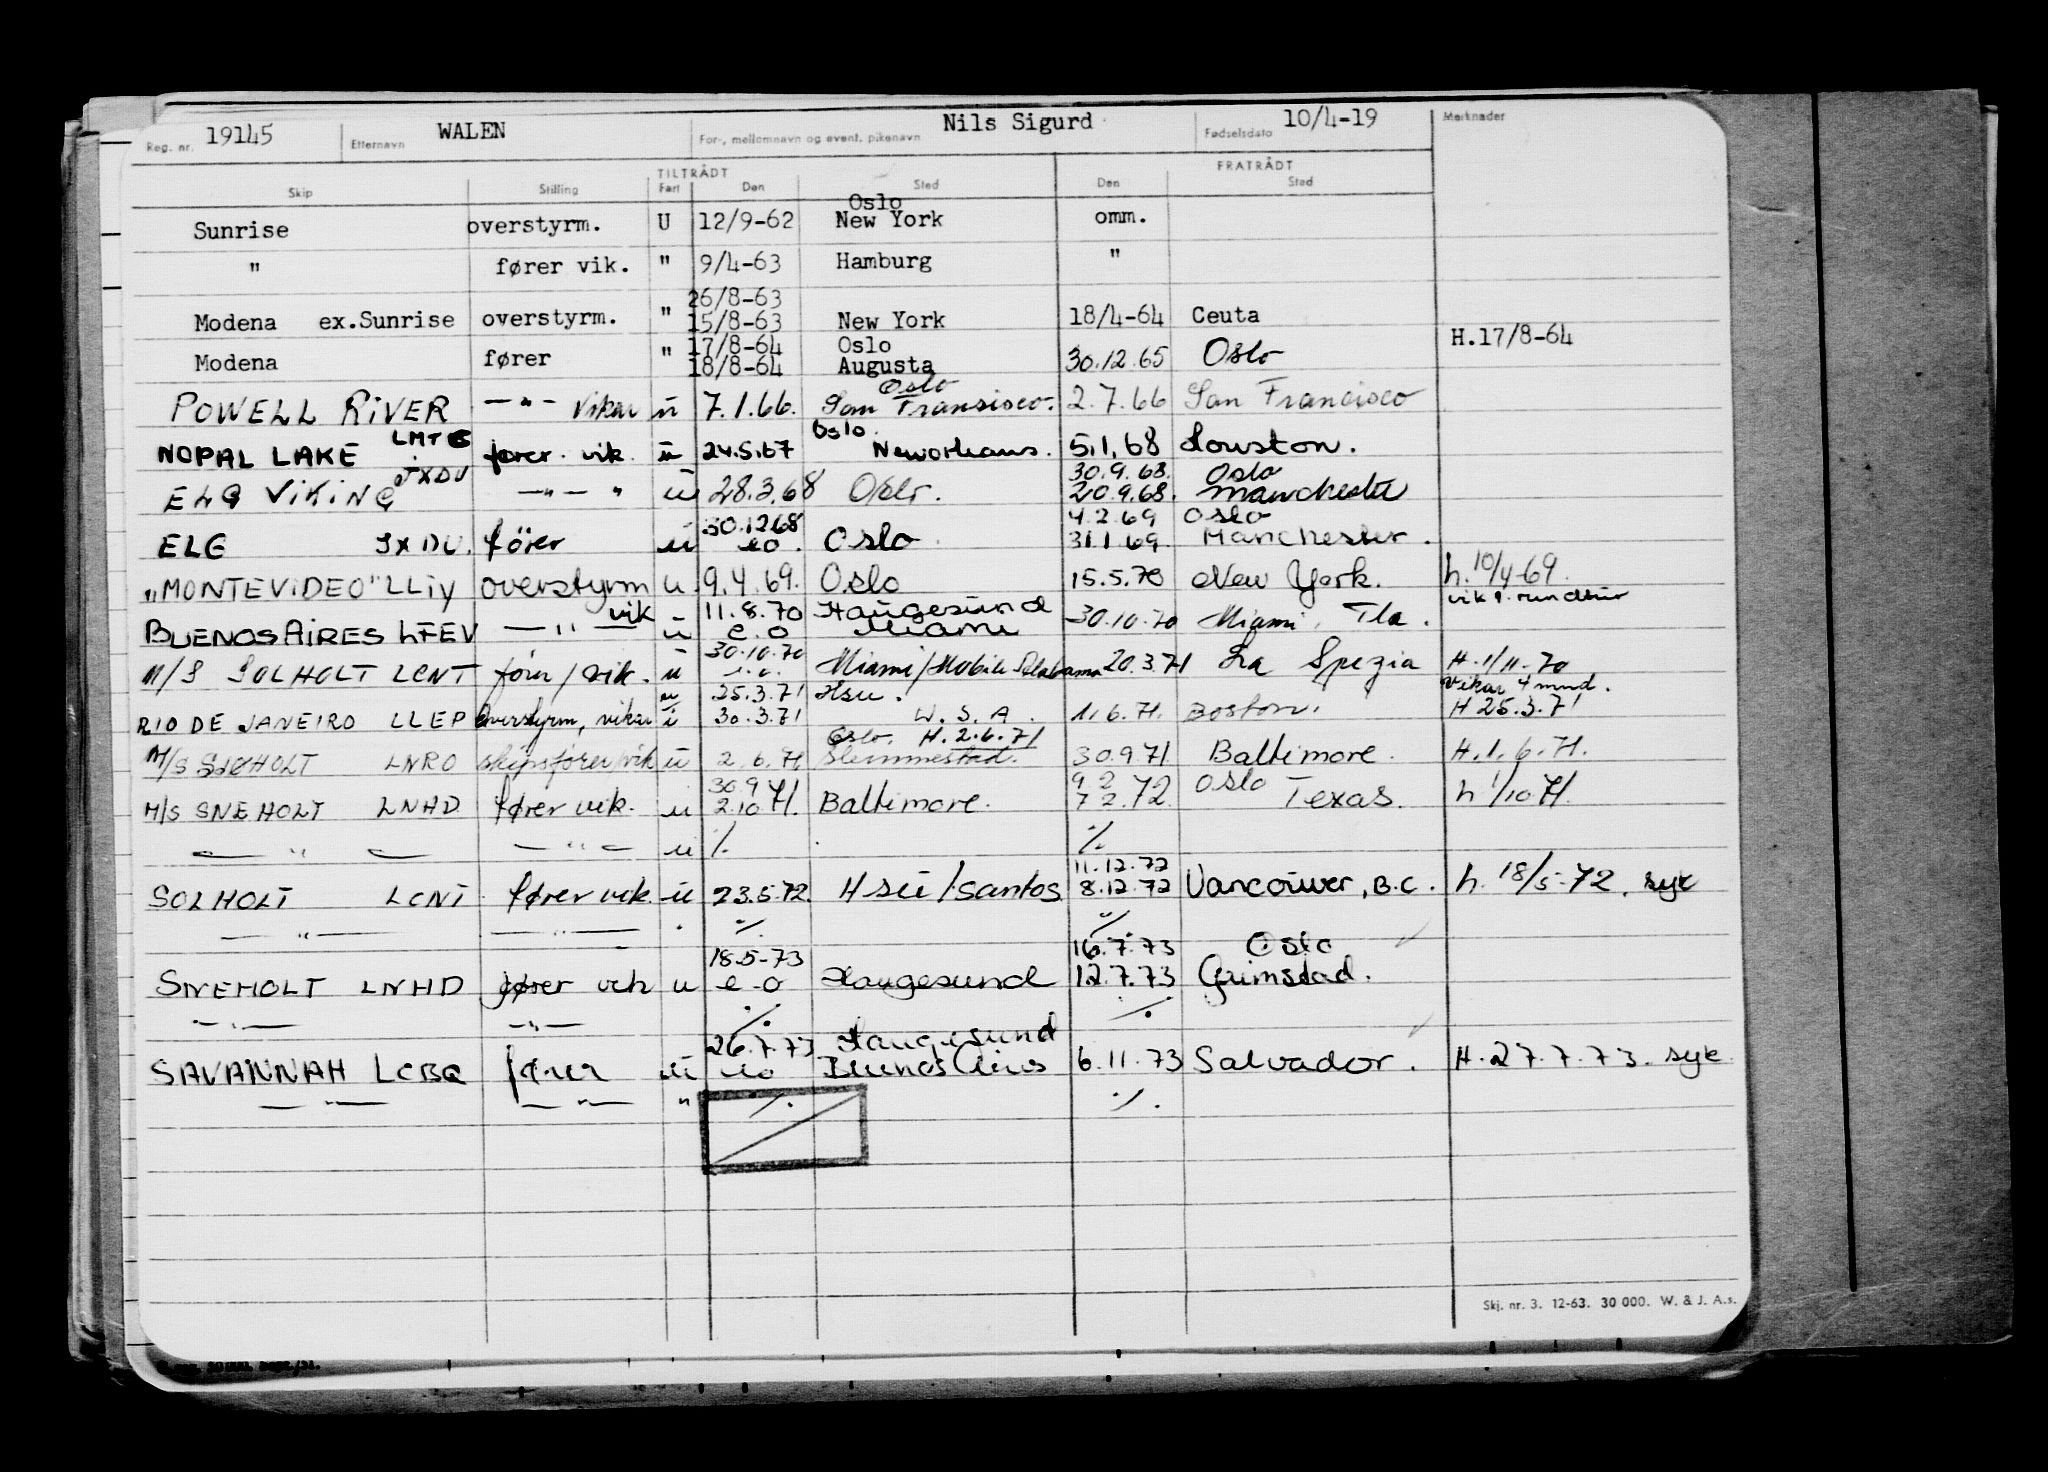 Reg. nr. 19145 Etternavn WALEN For-, mellomnavn og event. pikenavn Nils Sigurd Fødselsdato 10/4-19 Merknader
TILTRÅDT FRATRÅDT
Skip Stilling Fart Den Sted Den Sted
Oslo
Sunrise overstyrm. U 12/9-62 New York omm.
" fører vik. " 9/4-63 Hamburg "
26/8-63
Modena ex.Sunrise overstyrm. " 15/8-63 New York 18/4-64 Ceuta
17/8-64 Oslo H.17/8-64
Modena fører " 18/8-64 Augusta 30.12.65 Oslo
Oslo
POWELL RIVER —"— vikar ü 7.1.66. San Fransisco. 2.7.66 San Francisco
LMTG Oslo.
NOPAL LAKE fører. vik. ü 24.5.67 New Orleans. 5.1.68 Houston.
JXDU 30.9.68. Oslo
ELG VIKING —"— " ü 28.3.68 Oslo. 20.9.68. Manchester
30.12 68 4.2.69 Oslo
ELG JXDU. förer ü eo. Oslo 31.1.69. Manchester.
"MONTEVIDEO" LLiy overstyrm u. 9.4.69. Oslo 15.5.70 New York. h. 10/4-69.
vik 11.8.70 Haugesund vik 1. rundtur
BUENOS AIRES LFEV —"— ü e.o Miami 30.10.70 Miami, Fla.
30.10.70
M/S SOLHOLT LCNT fører/vik. ü e.o. Miami/Mobile Alabama 20.3.71 La Spezia H.1/11-70
25.3.71 Hsu. Vikar 4 mnd.
RIO DE JANEIRO LLEP Overstyrm, vikar ü 30.3.71 U.S.A. 1.6.71. Boston. H 25.3.71
Oslo. H.2.6.71
M/S SIEHOLT LNRO skipsfører/vik ü 2.6.71 Slemmestad. 30.9 71 Baltimore. H.1.6.71.
30 9 9 2 Oslo
M/S SNEHOLT LNHD fører vik. ü 2.10 71. Baltimore. 7 2.72. Texas. h 1/10 71.
— " — — " — ü ./. ./.
11.12.72
SOLHOLT LCNT fører vik. ü 23.5.72. Hsü/Santos 8.12.72 Vancouver, B.C. h. 18/5-72. syk
— " — — " — ./. ./.
18.5-73 16.7.73 Oslo
SNEHOLT LNHD fører vik u e-o Haugesund 12.7.73 Grimstad.
— " — — " — ./. ./.
26.7.73 Haugesund
SAVANNAH LCBQ fører ü eo Buenos Aires 6.11.73 Salvador. H.27.7.73. syk
— " — — " — " ./. ./.
Skj. nr. 3. 12-63. 30 000. W. & J. A.s.